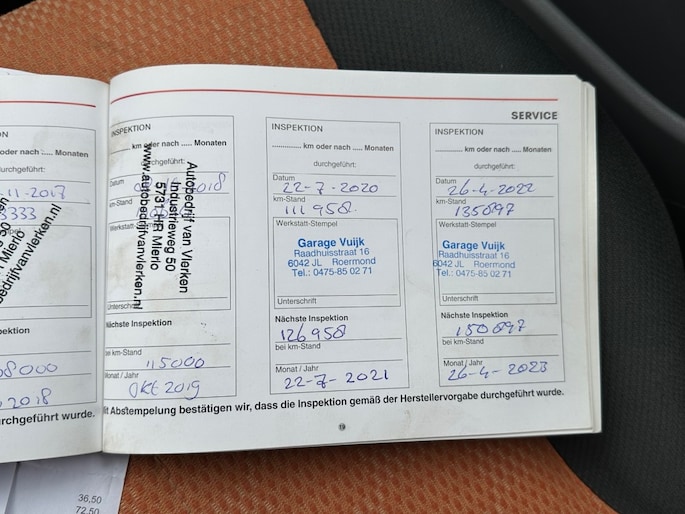 SERVICE
ON
oder nach ..... Monaten
durchgeführt:
11-2017
3333
Mierlo
edrijfvanvlierken.nl
pektion
8000
2018
rchgeführt wurde.
INSPEKTION
km oder nach ..... Monaten
durchgeführt:
Datum
2018
km-Stand
Werkstatt-Stempel
Autobedrijf van Vlerken
Industrieweg 50
5731 HR Mierlo
www.autobedrijfvanvlerken.nl
Unterschrift
Nächste Inspektion
bei km-Stand
115000
Monat / Jahr
Okt 2019
INSPEKTION
km oder nach ..... Monaten
durchgeführt:
Datum
22-7-2020
km-Stand
111958
Werkstatt-Stempel
Garage Vuijk
Raadhuisstraat 16
6042 JL Roermond
Tel.: 0475-85 02 71
Unterschrift
Nächste Inspektion
126958
bei km-Stand
Monat / Jahr
22-7-2021
INSPEKTION
km oder nach ..... Monaten
durchgeführt:
Datum
26-4-2022
km-Stand
135897
Werkstatt-Stempel
Garage Vuijk
Raadhuisstraat 16
6042 JL Roermond
Tel.: 0475-85 02 71
Unterschrift
Nächste Inspektion
150897
bei km-Stand
Monat / Jahr
26-4-2023
Mit Abstempelung bestätigen wir, dass die Inspektion gemäß der Herstellervorgabe durchgeführt wurde.
19
36,50
72,50